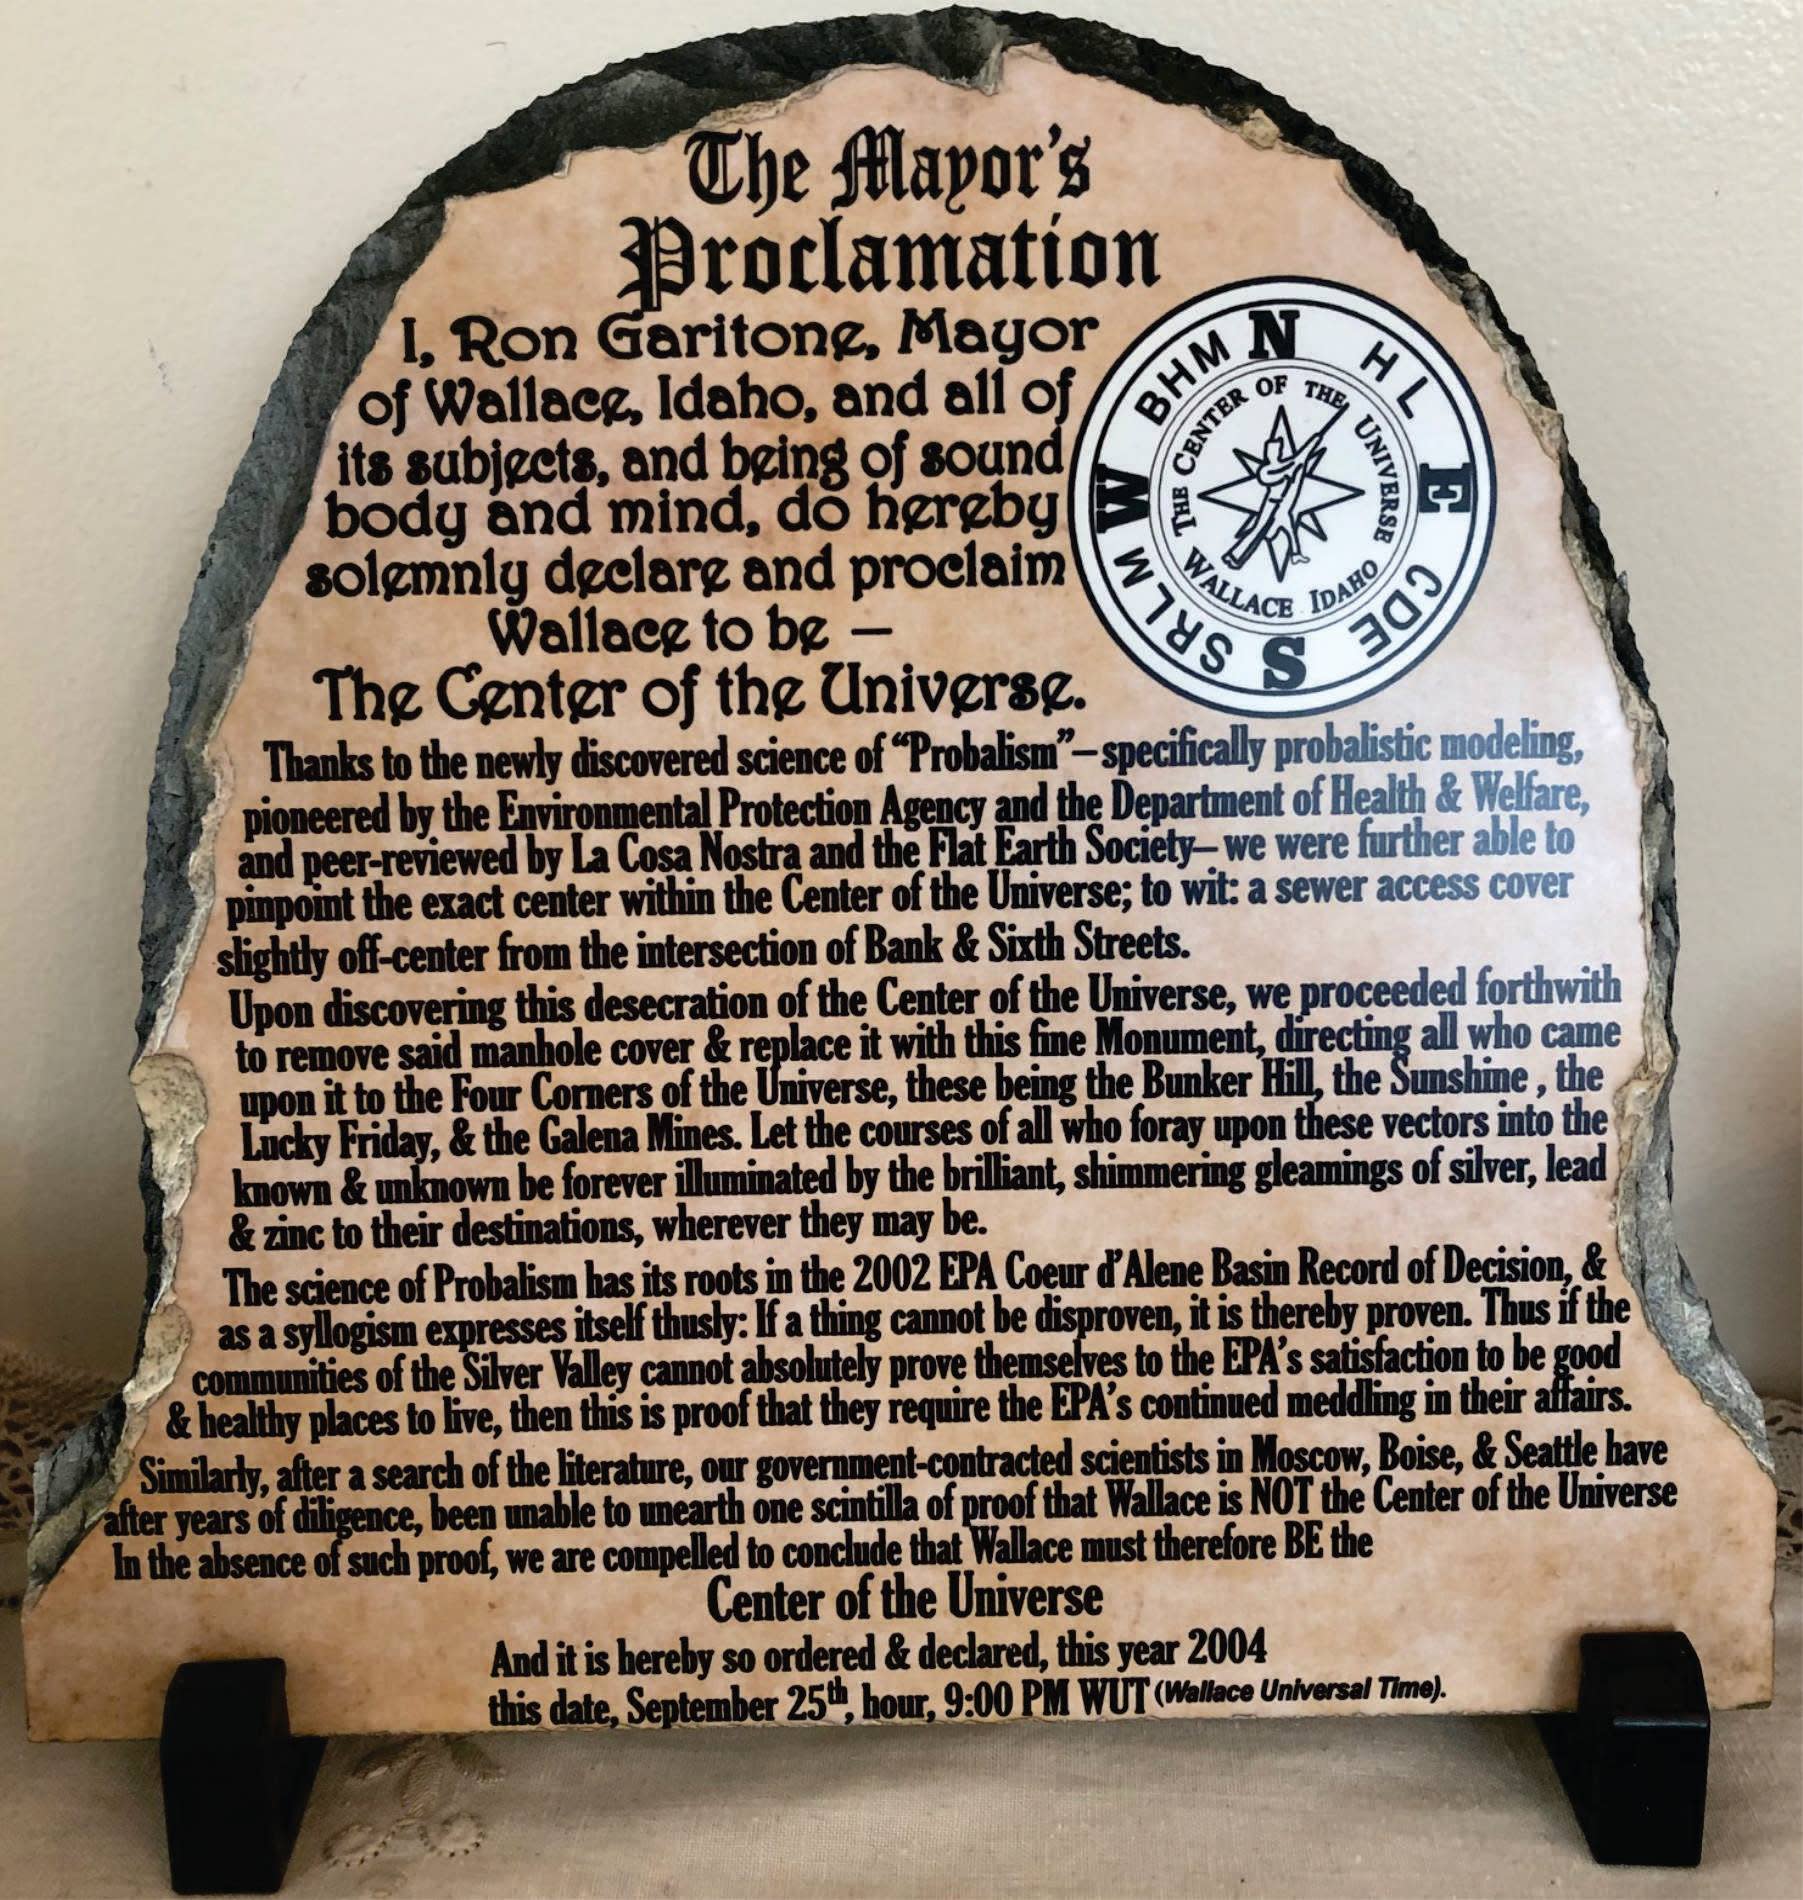 The Mayor's
Proclamation
I, Ron Garitone, Mayor
of Wallace, Idaho, and all of
its subjects, and being of sound
body and mind, do hereby
solemnly declare and proclaim
Wallace to be –
The Center of the Universe.
N
HL
E
CDE
S
SRLM
W
BHM
THE CENTER OF THE UNIVERSE
WALLACE IDAHO
Thanks to the newly discovered science of “Probalism”–specifically probalistic modeling,
pioneered by the Environmental Protection Agency and the Department of Health & Welfare,
and peer-reviewed by La Cosa Nostra and the Flat Earth Society–we were further able to
pinpoint the exact center within the Center of the Universe; to wit: a sewer access cover
slightly off-center from the intersection of Bank & Sixth Streets.
Upon discovering this desecration of the Center of the Universe, we proceeded forthwith
to remove said manhole cover & replace it with this fine Monument, directing all who came
upon it to the Four Corners of the Universe, these being the Bunker Hill, the Sunshine , the
Lucky Friday, & the Galena Mines. Let the courses of all who foray upon these vectors into the
known & unknown be forever illuminated by the brilliant, shimmering gleamings of silver, lead
& zinc to their destinations, wherever they may be.
The science of Probalism has its roots in the 2002 EPA Coeur d'Alene Basin Record of Decision, &
as a syllogism expresses itself thusly: If a thing cannot be disproven, it is thereby proven. Thus if the
communities of the Silver Valley cannot absolutely prove themselves to the EPA's satisfaction to be good
& healthy places to live, then this is proof that they require the EPA's continued meddling in their affairs.
Similarly, after a search of the literature, our government-contracted scientists in Moscow, Boise, & Seattle have
after years of diligence, been unable to unearth one scintilla of proof that Wallace is NOT the Center of the Universe
In the absence of such proof, we are compelled to conclude that Wallace must therefore BE the
Center of the Universe
And it is hereby so ordered & declared, this year 2004
this date, September 25th, hour, 9:00 PM WUT (Wallace Universal Time).